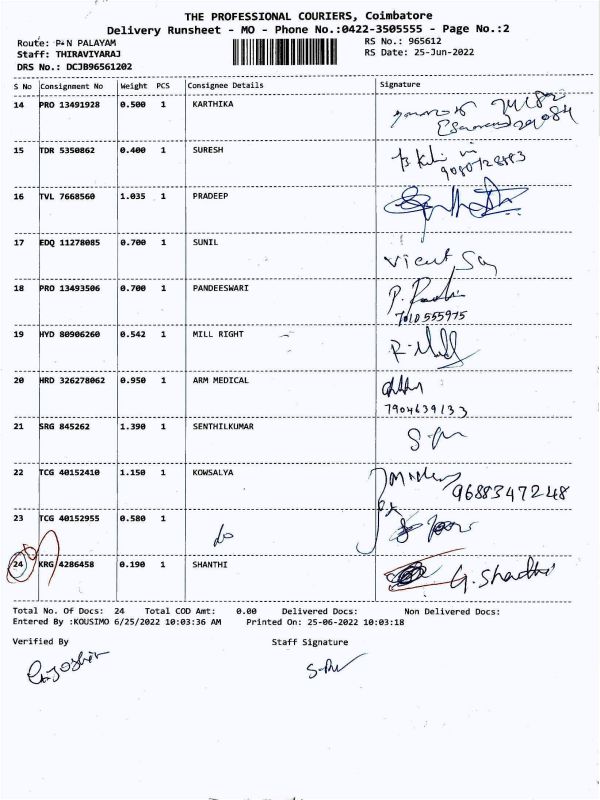 THE PROFESSIONAL COURIERS, Coimbatore
Delivery Runsheet - MO - Phone No.:0422-3505555 - Page No.:2
Route: P-N PALAYAM RS No.: 965612
Staff: THIRAVIYARAJ RS Date: 25-Jun-2022
DRS No.: DCJB96561202
S No Consignment No Weight PCS Consignee Details Signature
14 PRO 13491928 0.500 1 KARTHIKA
15 TDR 5350862 0.400 1 SURESH
16 TVL 7668560 1.035 1 PRADEEP
17 EDQ 11278085 0.700 1 SUNIL
18 PRO 13493506 0.700 1 PANDEESWARI
19 HYD 80906260 0.542 1 MILL RIGHT
20 HRD 326278062 0.950 1 ARM MEDICAL
7904639133
21 SRG 845262 1.390 1 SENTHILKUMAR
22 TCG 40152410 1.150 1 KOWSALYA
9688347248
23 TCG 40152955 0.580 1
24 KRG 4286458 0.190 1 SHANTHI G. Shanthi
Total No. Of Docs: 24 Total COD Amt: 0.00 Delivered Docs: Non Delivered Docs:
Entered By :KOUSIMO 6/25/2022 10:03:36 AM Printed On: 25-06-2022 10:03:18
Verified By Staff Signature